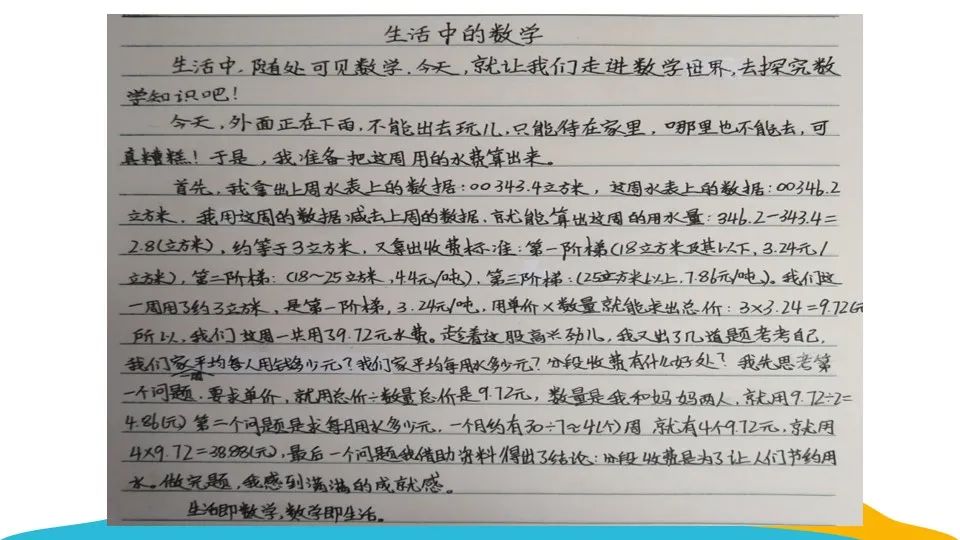 生活中的数学
生活中，随处可见数学，今天，就让我们走进数学世界，去探究数
学知识吧！
今天，外面正在下雨，不能出去玩儿，只能待在家里，哪里也不能去，可
真糟糕！于是，我准备把这周用的水费算出来。
首先，我拿出上周水表上的数据：00343.4立方米，这周水表上的数据：00346.2
立方米，我用这周的数据减去上周的数据，就能算出这周的用水量：346.2-343.4=
2.8(立方米)，约等于3立方米，又拿出收费标准：第一阶梯(18立方米及其以下，3.24元/
立方米)，第二阶梯：(18～25立方米，4.4元/吨)，第三阶梯：(25立方米以上，7.86元/吨)。我们这
一周用了约3立方米，是第一阶梯，3.24元/吨，用单价×数量就能求出总价：3×3.24=9.72(元
所以，我们这周一共用了9.72元水费。趁着这股高兴劲儿，我又出了几道题考考自己，
我们家平均每人用钱多少元？我们家平均每用水多少元？分段收费有什么好处？我先思考第
一个问题，要求单价，就用总价÷数量总价是9.72元，数量是我和妈妈两人，就用9.72÷2=
4.86(元)第二个问题是求每月用水多少元，一个月约有30÷7≈4(个)周 就有4个9.72元，就用
4×9.72=38.88(元)，最后一个问题我借助资料得出了结论：分段收费是为了让人们节约用
水。做完题，我感到满满的成就感。
生活即数学，数学即生活。